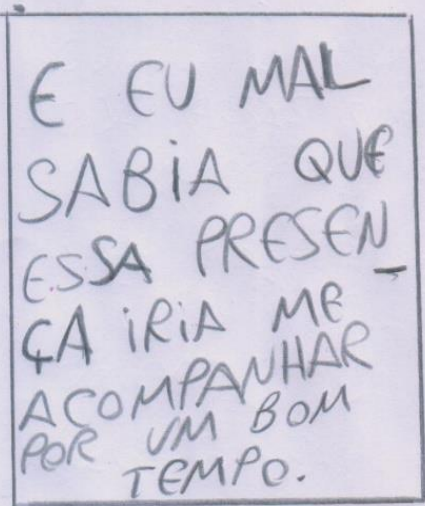 E EU MAL
SABIA QUE
ESSA PRESEN_
ÇA IRIA ME
ACOMPANHAR
POR UM BOM
TEMPO.